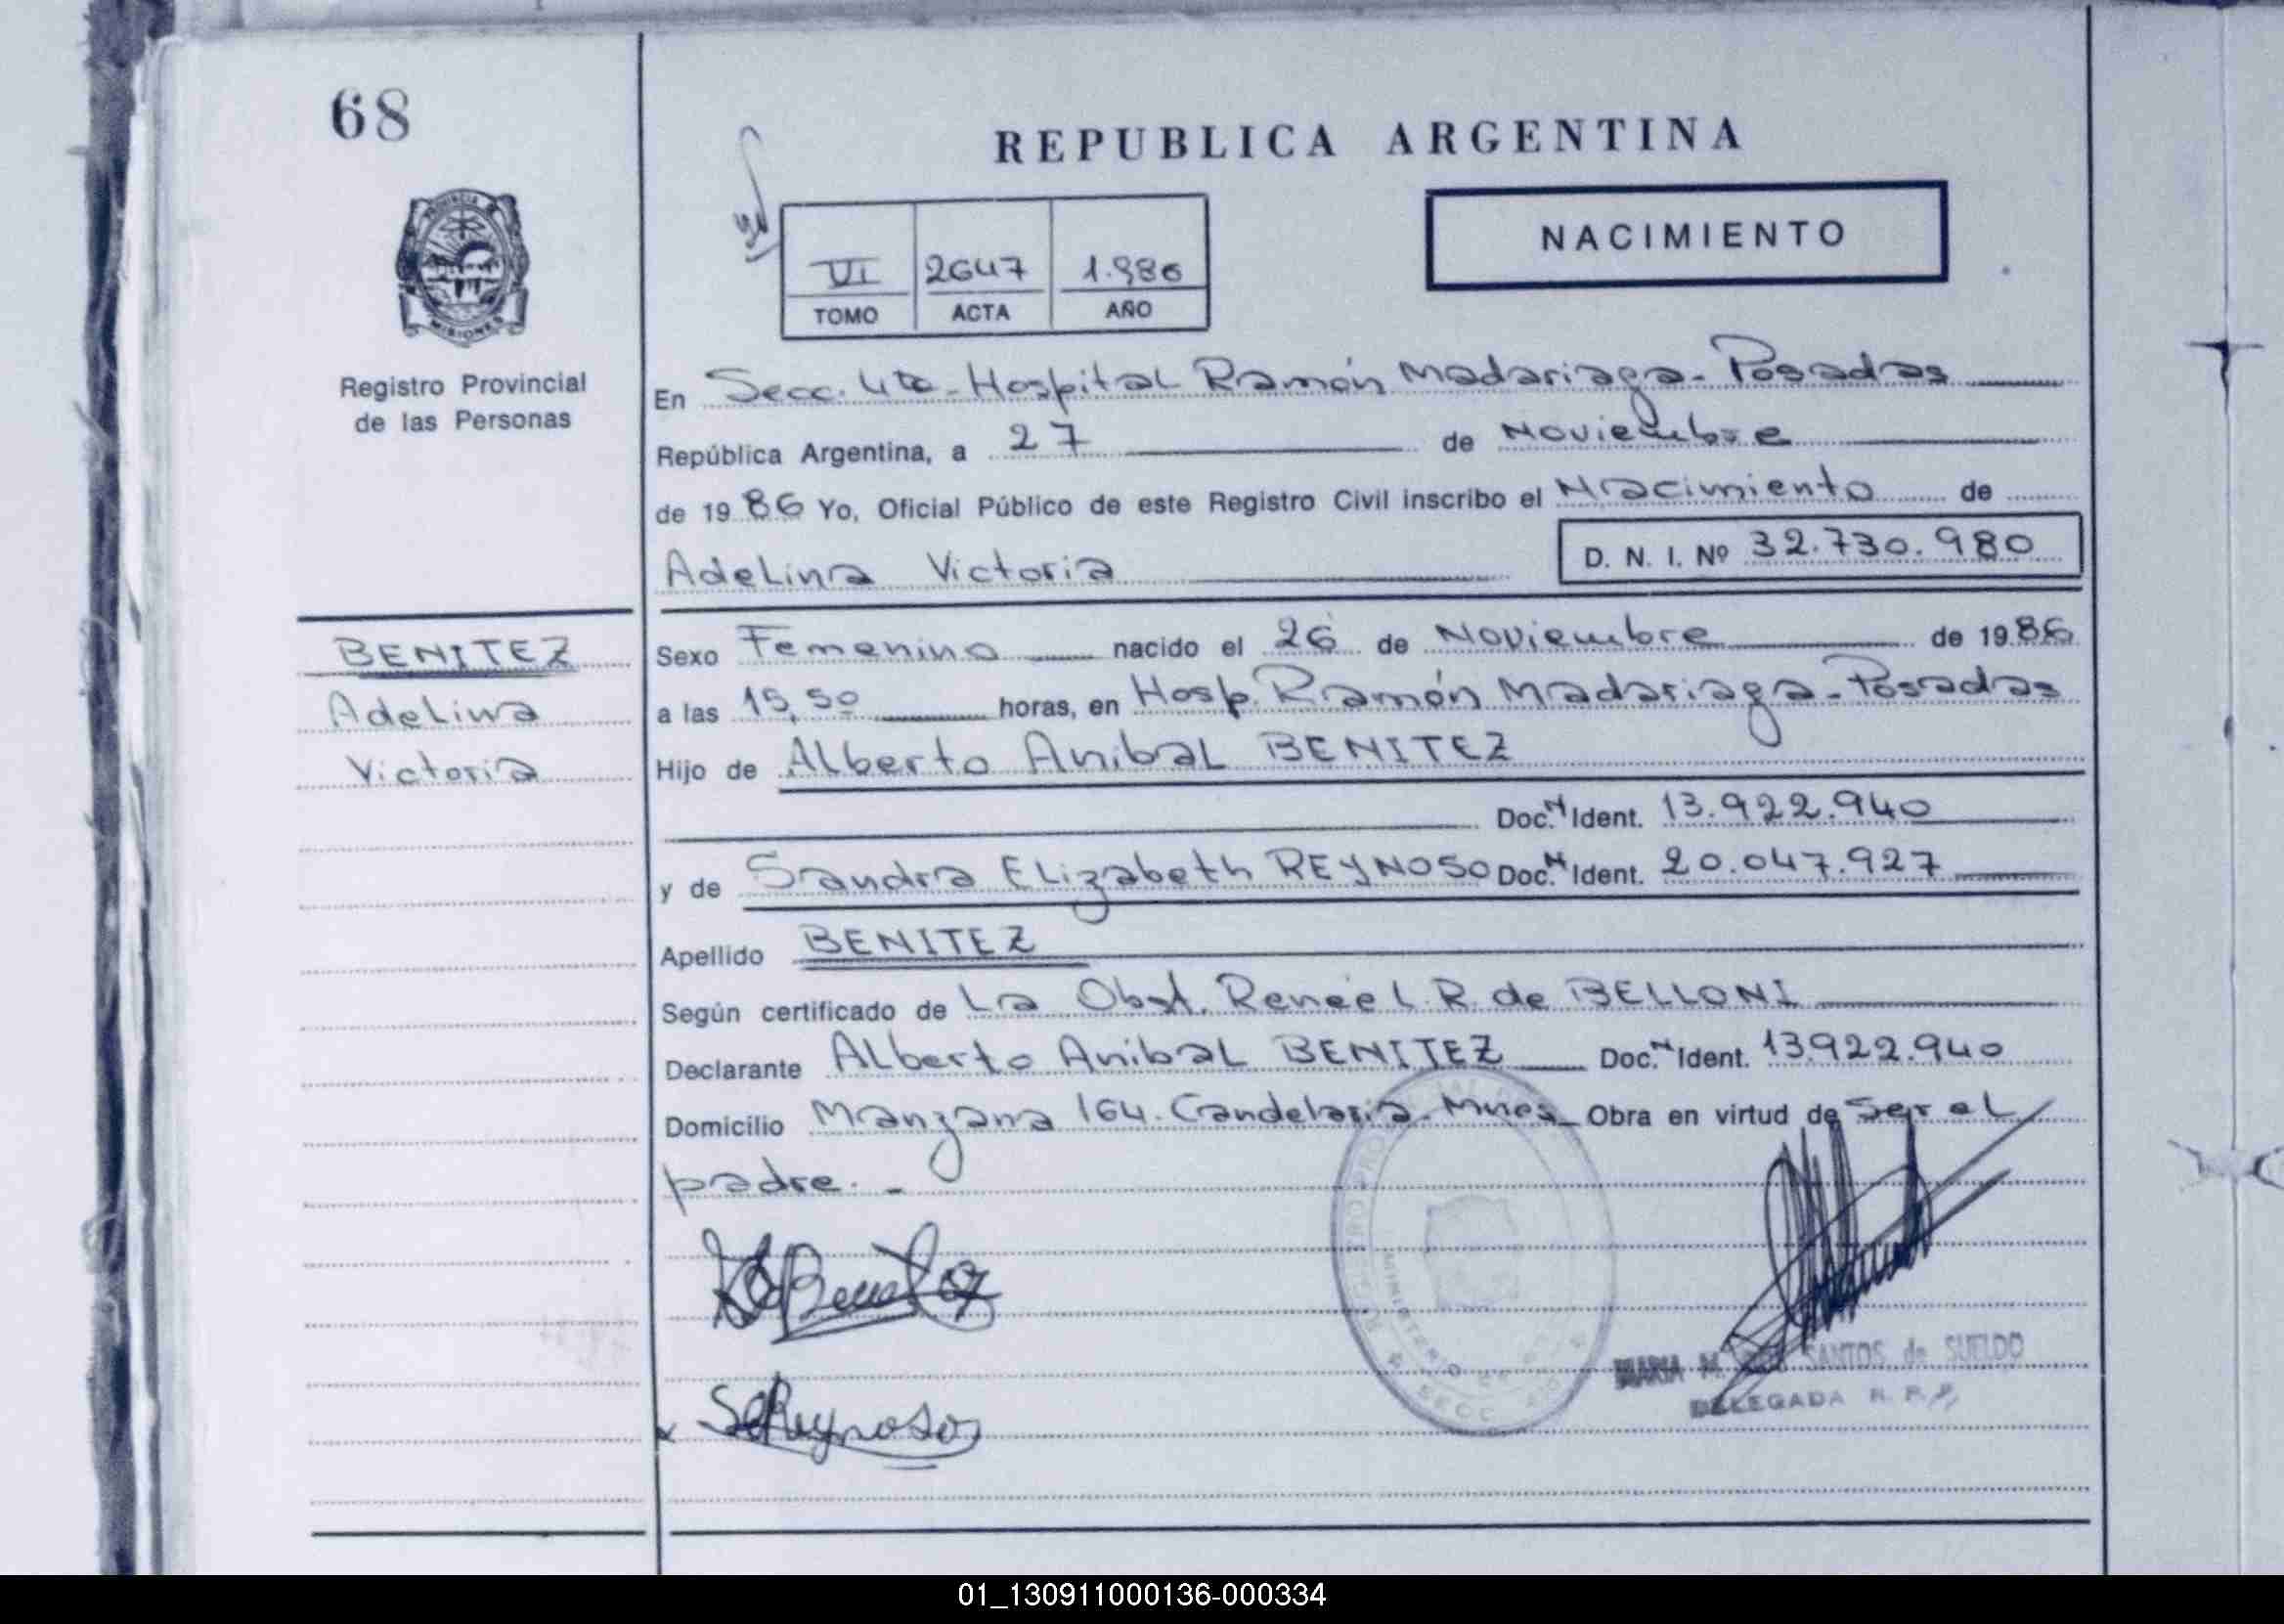 68
REPUBLICA ARGENTINA
NACIMIENTO
VI 2647 1.986
TOMO ACTA AÑO
PROVINCIA DE
MISIONES
Registro Provincial
de las Personas
En Secc. 4ta - Hospital Ramón Madariaga - Posadas
República Argentina, a 27 de Noviembre
de 19 86 Yo, Oficial Público de este Registro Civil inscribo el Nacimiento de
Adelina Victoria D. N. I. Nº 32.730.980
BENITEZ
Adelina
Victoria
Sexo Femenino nacido el 26 de Noviembre de 19 86
a las 15,50 horas, en Hosp. Ramón Madariaga - Posadas
Hijo de Alberto Anibal BENITEZ
Doc. N Ident. 13.922.940
y de Sandra Elizabeth REYNOSO Doc. N Ident. 20.047.927
Apellido BENITEZ
Según certificado de La Obst. Reneé L. R. de BELLONI
Declarante Alberto Anibal BENITEZ Doc. N Ident. 13.922.940
Domicilio Manzana 164. Candelaria - Mnes Obra en virtud de ser el
padre. -
Benitez
SEReynoso
MARIA M. SANTOS de SUELDO
DELEGADA R. P. P.
REGISTRO PRO
MINISTERIO DE
SECC.
01_130911000136-000334